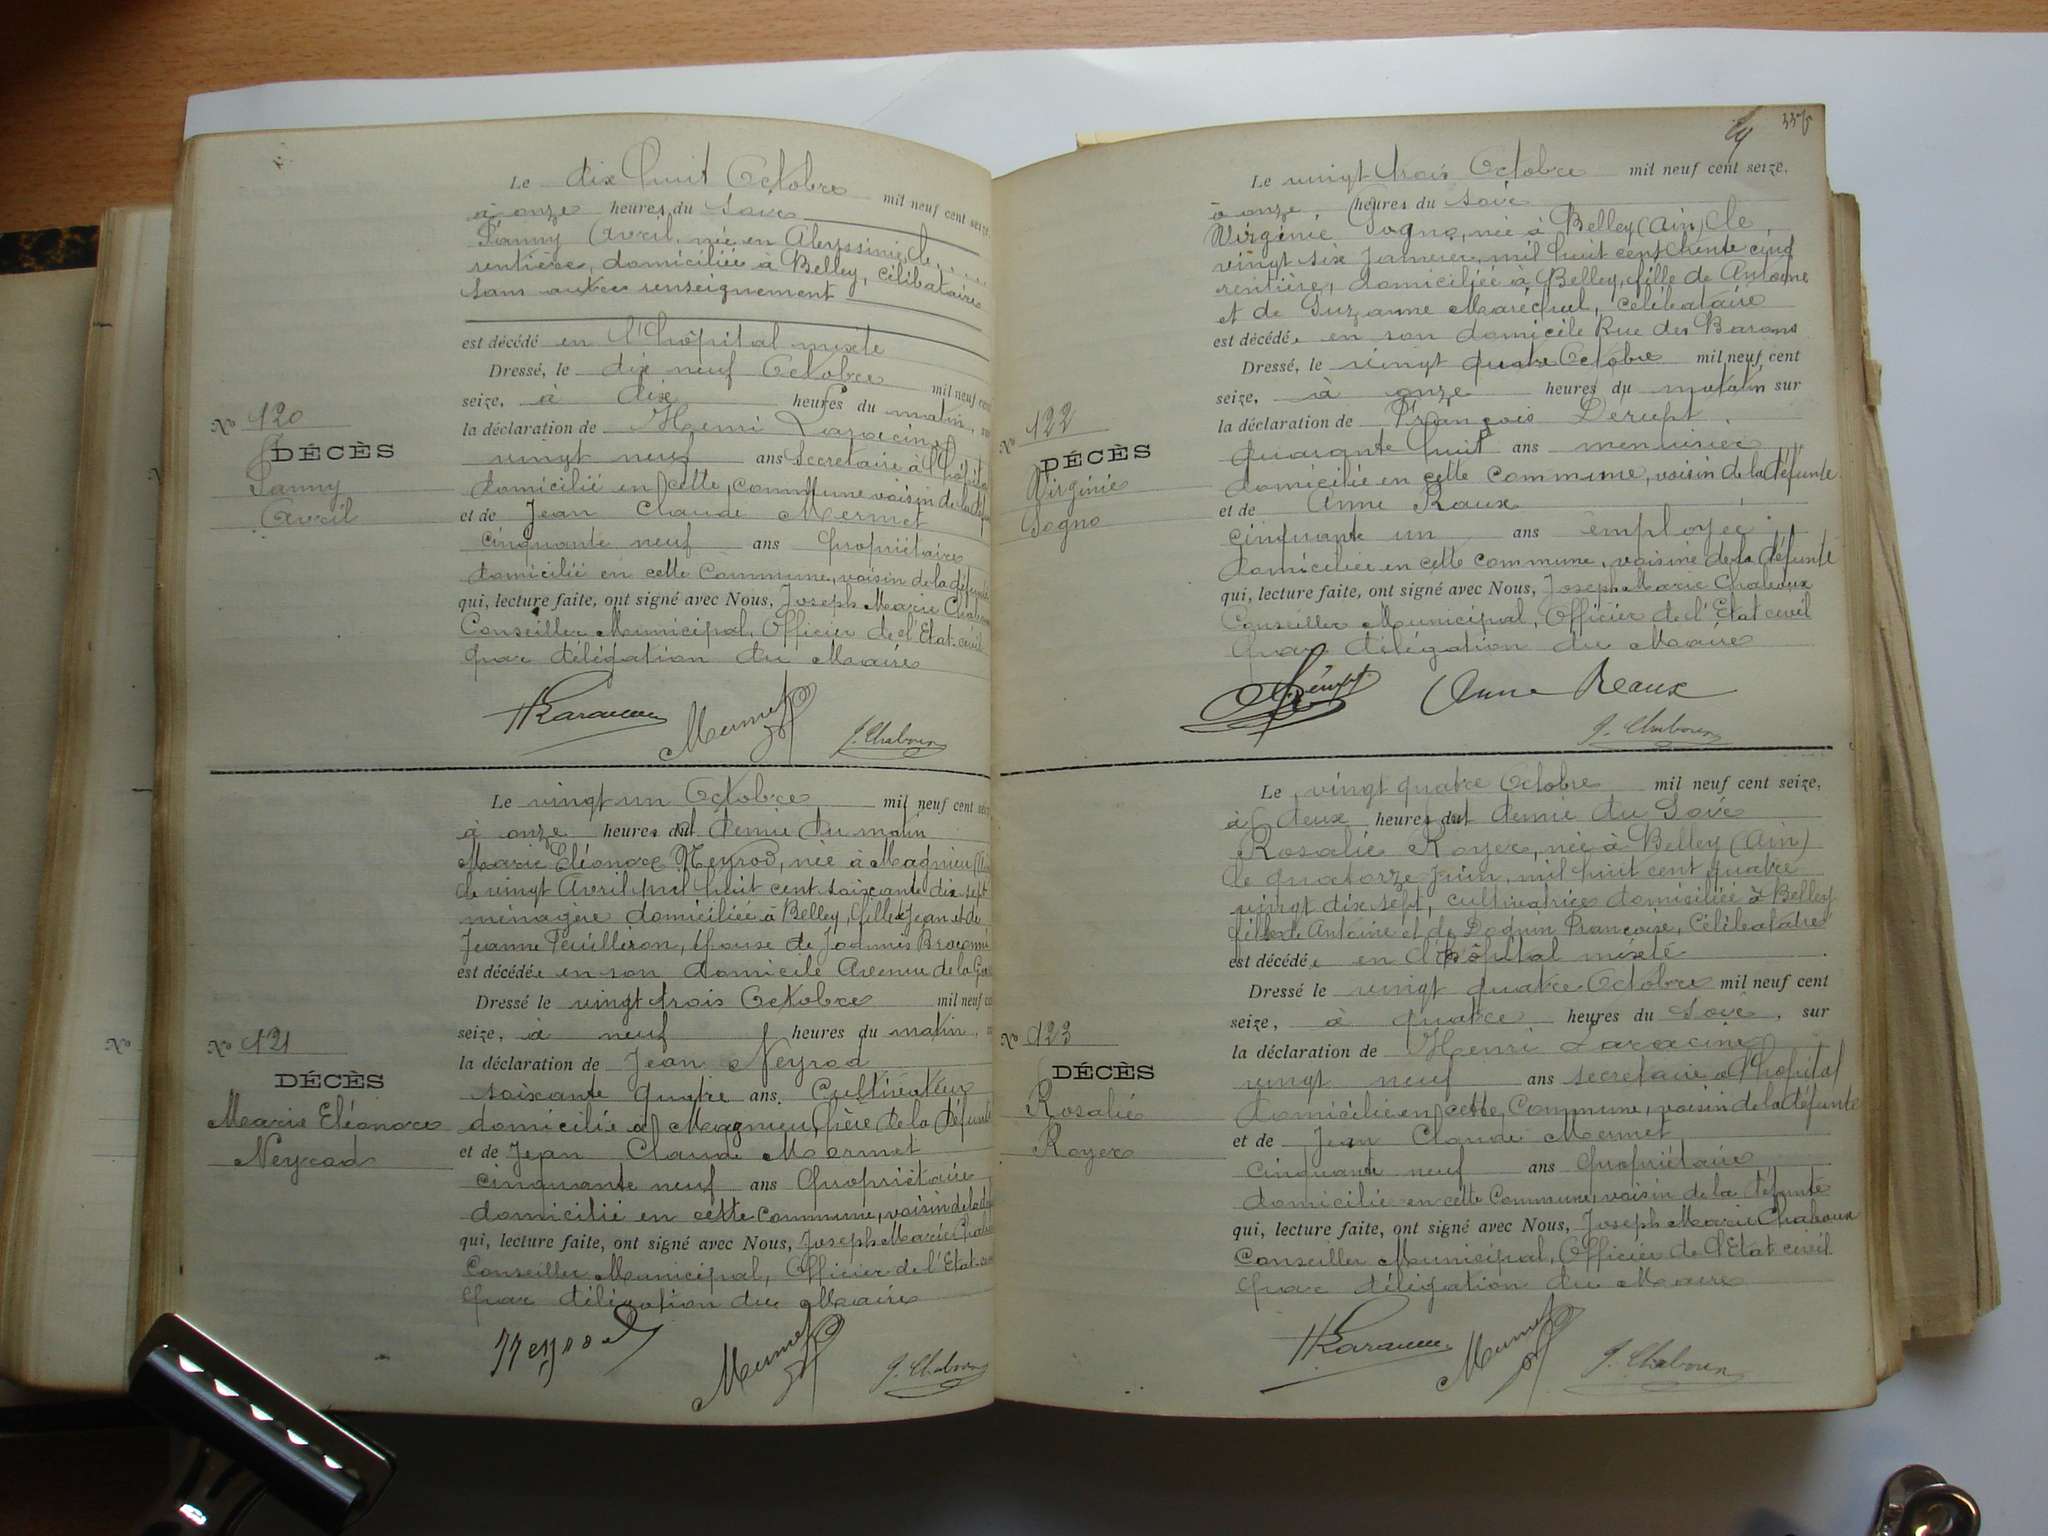 Le dix huit Octobre mil neuf cent seize,
à onze heures du soir
Fanny Avril, née en Abyssinie, le . . . .
rentière, domiciliée à Belley, célibataire
sans autre renseignement
est décédé en l'hôpital mixte
Dressé, le dix neuf Octobre mil neuf cent
seize, à dix heures du matin,
la déclaration de Henri
vingt neuf ans secrétaire à l'hôpital
domicilié en cette commune voisin de la
et de Jean Claude Mermet
cinquante neuf ans propriétaire
domicilié en cette commune, voisin de la défunte
qui, lecture faite, ont signé avec Nous, Joseph Marie
Conseiller Municipal, Officier de l'Etat-civil
par délégation du Maire
No 120
DÉCÈS
Fanny
Avril
Mermet
J. Chaboux
Le vingt un Octobre mil neuf cent
à onze heures et demie du matin
Marie Eléonore Neyrod, née à Magnieu
le vingt Avril mil huit cent soixante dix sept
ménagère domiciliée à Belley, fille de Jean et de
Jeanne Feuilleron, épouse de Joannès
est décédée en son domicile Avenue de la
Dressé le vingt trois Octobre mil neuf
seize, à neuf heures du matin,
la déclaration de Jean Neyrod
soixante quatre ans. Cultivateur
domicilié à Magnieu, père de la défunte
et de Jean Claude Mermet
cinquante neuf ans Propriétaire
domicilié en cette commune, voisin de la
qui, lecture faite, ont signé avec Nous, Joseph Marie
Conseiller Municipal, Officier de l'Etat
par délégation du Maire
No 121
DÉCÈS
Marie Eléonore
Neyrod
Neyrod
Mermet
J. Chaboux
Le vingt trois Octobre mil neuf cent seize,
à onze heures du soir
Virginie Sogno, née à Belley (Ain) le
vingt six Janvier, mil huit cent trente cinq
rentière, domiciliée à Belley, fille de Antoine
et de Suzanne Maréchal, célibataire
est décédée en son domicile Rue des Barons
Dressé, le vingt quatre Octobre mil neuf cent
seize, à onze heures du matin, sur
la déclaration de François Dérupt
quarante huit ans menuisier
domicilié en cette commune, voisin de la défunte
et de Anne Raux
cinquante un ans employée
domiciliée en cette commune, voisine de la défunte
qui, lecture faite, ont signé avec Nous, Joseph Marie Chaboux
Conseiller Municipal, Officier de l'Etat civil
par délégation du Maire
No 122
DÉCÈS
Virginie
Sogno
Dérupt
Anne Reaux
J. Chaboux
Le vingt quatre Octobre mil neuf cent seize,
à deux heures et demie du soir
Rosalie Royer, née à Belley (Ain)
le quatorze Juin, mil huit cent quatre
vingt dix sept, cultivatrice domiciliée à Belley
fille de Antoine et de Françoise, Célibataire
est décédée en l'hôpital mixte
Dressé le vingt quatre Octobre mil neuf cent
seize, à quatre heures du soir, sur
la déclaration de Henri
vingt neuf ans secrétaire à l'hôpital
domicilié en cette Commune, voisin de la défunte
et de Jean Claude Mermet
cinquante neuf ans propriétaire
domicilié en cette Commune, voisin de la défunte
qui, lecture faite, ont signé avec Nous, Joseph Marie Chaboux
Conseiller Municipal, Officier de l'Etat civil
par délégation du Maire
No 123
DÉCÈS
Rosalie
Royer
Mermet
J. Chaboux